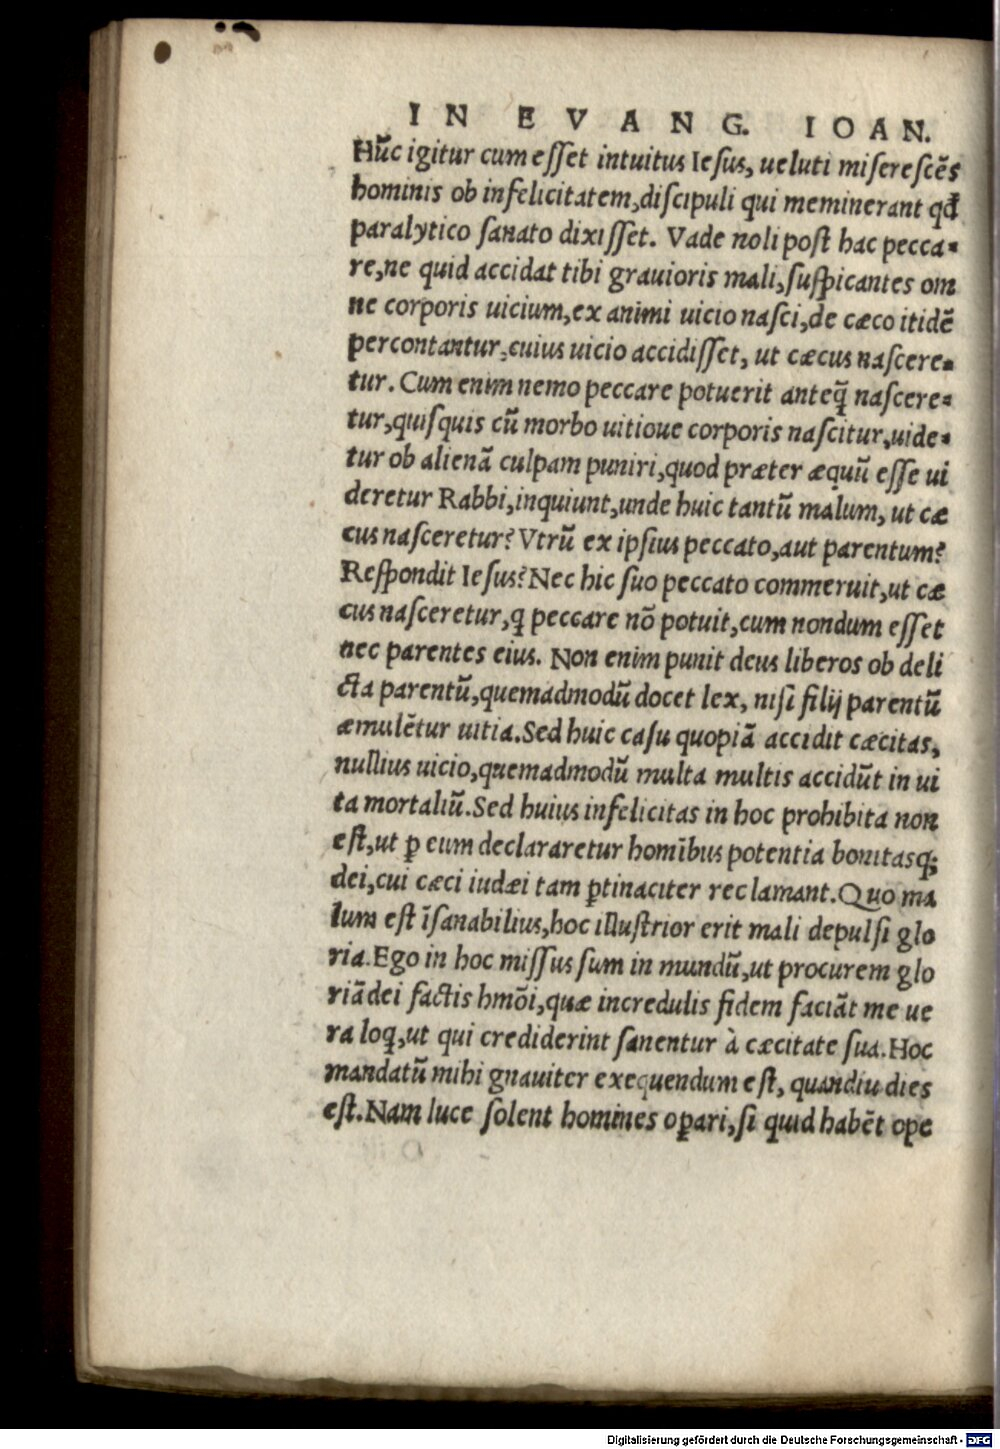 IN EVANG. IOAN.
Hūc igitur cum esset intuitus Iesus, ueluti miserescēs
hominis ob infelicitatem, discipuli qui meminerant qđ
paralytico sanato dixisset. Vade noli post hac pecca-
re, ne quid accidat tibi grauioris mali, suspicantes om
ne corporis uicium, ex animi uicio nasci, de cæco itidē
percontantur, cuius uicio accidisset, ut cæcus nascere-
tur. Cum enim nemo peccare potuerit anteq̃ nascere-
tur, quisquis cū morbo uitioue corporis nascitur, uide-
tur ob alienā culpam puniri, quod præter æquū esse ui
deretur Rabbi, inquiunt, unde huic tantū malum, ut cæ
cus nasceretur? Vtrū ex ipsius peccato, aut parentum?
Respondit Iesus? Nec hic suo peccato commeruit, ut cæ
cus nasceretur, ꝗ peccare nō potuit, cum nondum esset
nec parentes eius. Non enim punit deus liberos ob deli
cta parentū, quemadmodū docet lex, nisi filij parentū
æmulētur uitia. Sed huic casu quopiā accidit cæcitas,
nullius uicio, quemadmodū multa multis accidūt in ui
ta mortaliū. Sed huius infelicitas in hoc prohibita non
est, ut ꝑ eum declararetur homībus potentia bonitasq;
dei, cui cæci iudæi tam ꝑtinaciter reclamant. Quo ma
lum est īsanabilius, hoc illustrior erit mali depulsi glo
ria. Ego in hoc missus sum in mundū, ut procurem glo
riā dei factis hmōi, quæ incredulis fidem faciāt me ue
ra loꝗ, ut qui crediderint sanentur à cæcitate sua. Hoc
mandatū mihi gnauiter exequendum est, quandiu dies
est. Nam luce solent homines oꝑari, si quid habēt ope
Digitalisierung gefördert durch die Deutsche Forschungsgemeinschaft - DFG